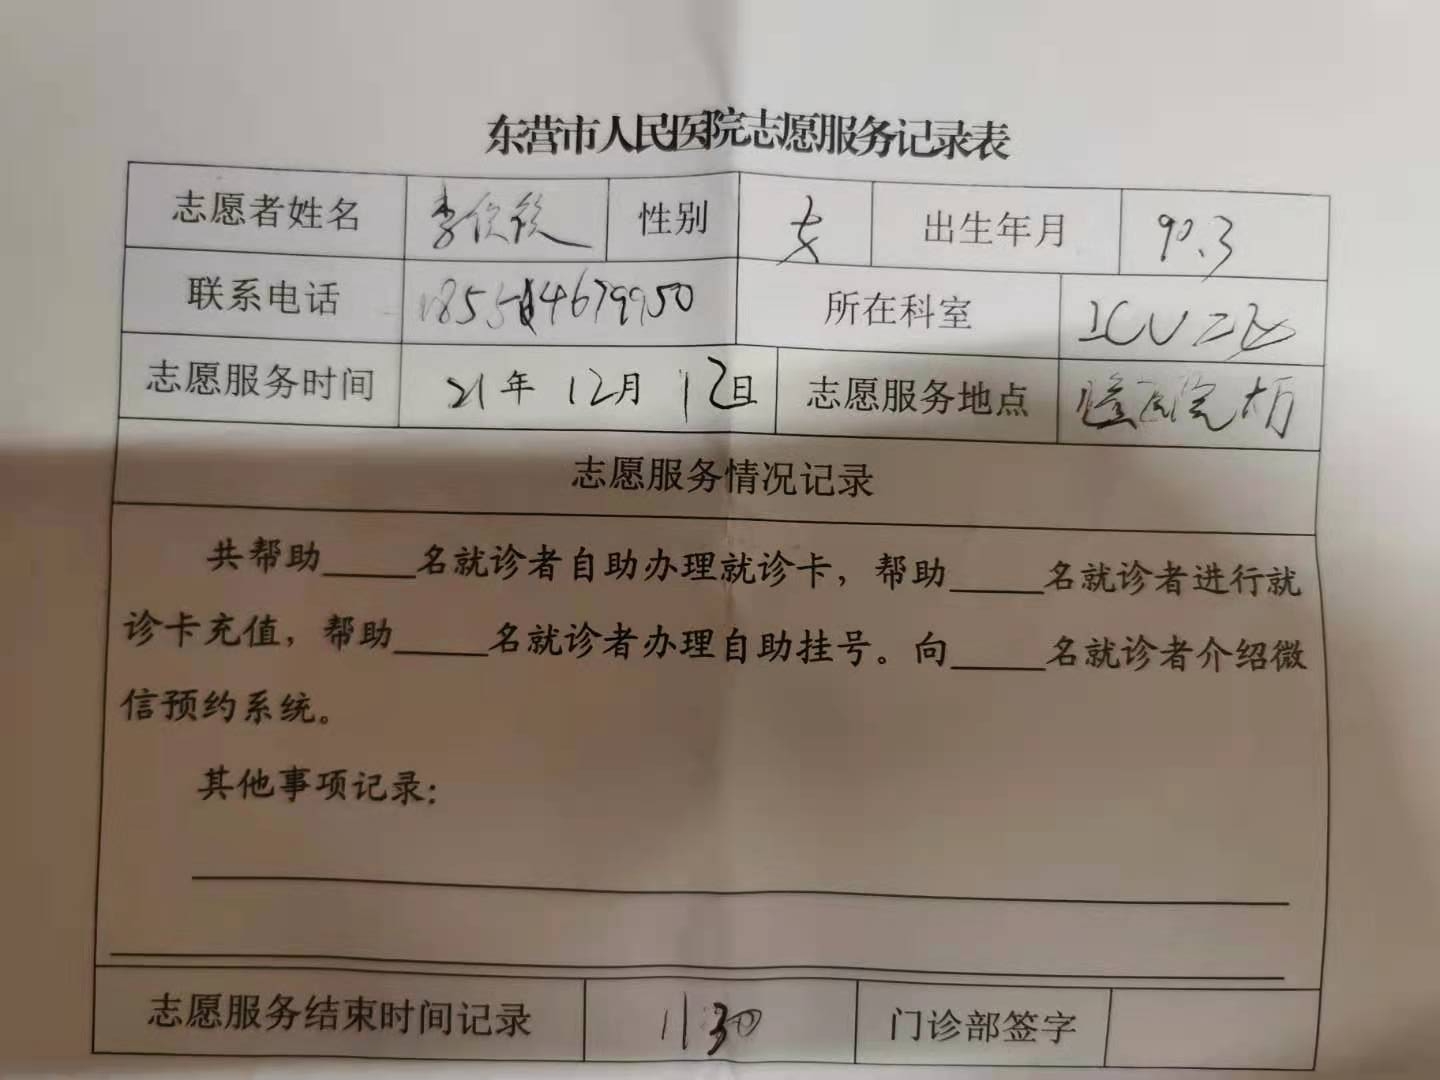 东营市人民医院志愿服务记录表
志愿者姓名 李俊筱 性别 女 出生年月 90.3
联系电话 所在科室 ICU二区
志愿服务时间 21年12月12日 志愿服务地点
志愿服务情况记录
共帮助_____名就诊者自助办理就诊卡，帮助_____名就诊者进行就
诊卡充值，帮助_____名就诊者办理自助挂号。向_____名就诊者介绍微
信预约系统。
其他事项记录：
志愿服务结束时间记录 1130 门诊部签字